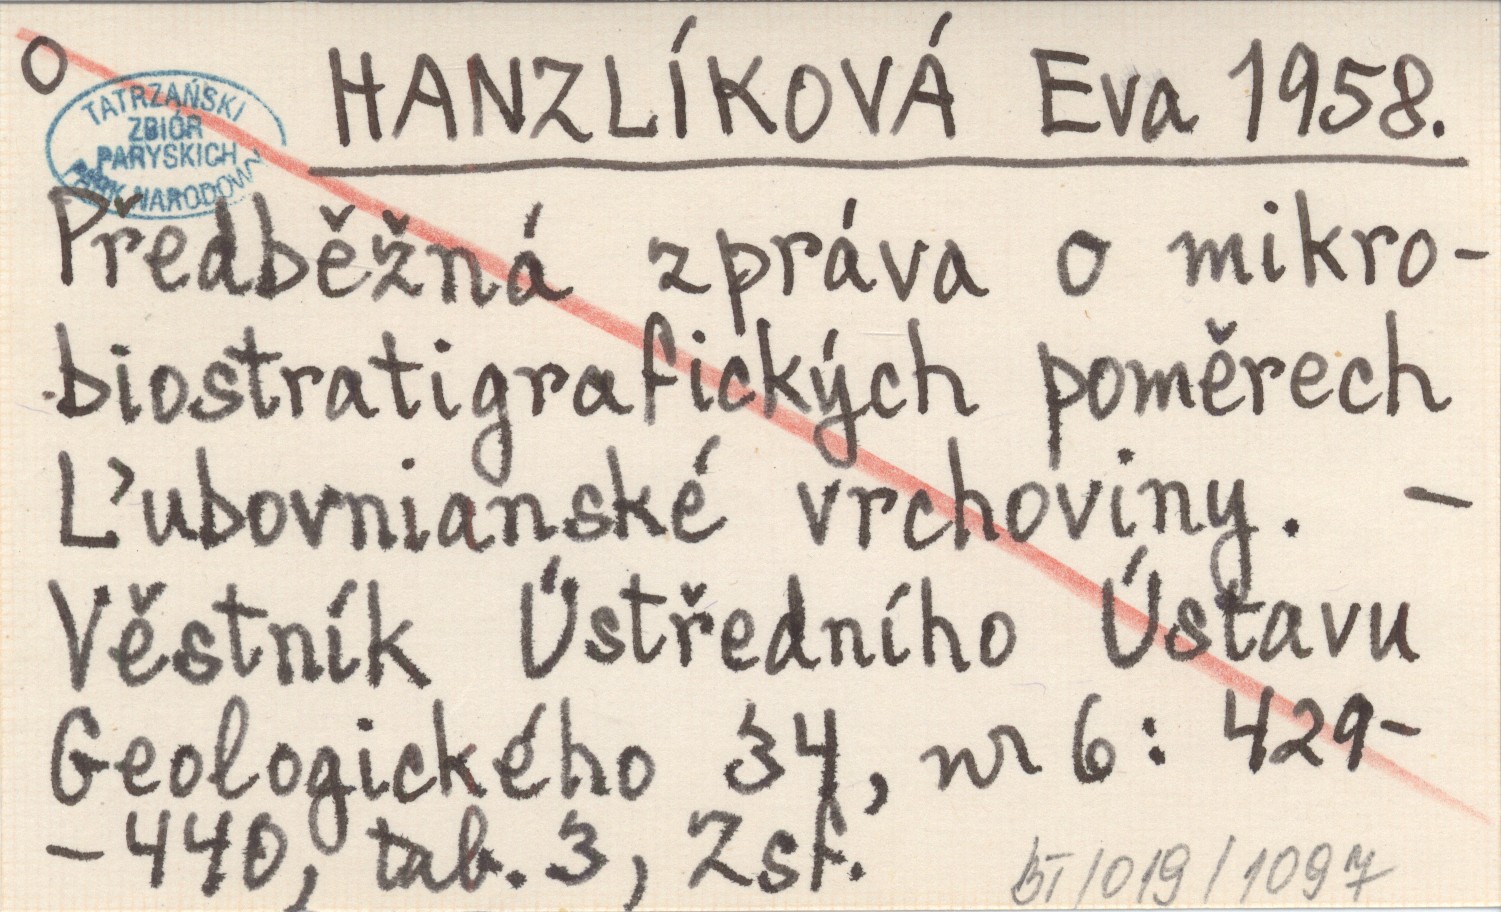 O
HANZLÍKOVÁ Eva 1958.
TATRZAŃSKI
ZBIÓR
PARYSKICH
PARK NARODOWY
Předběžná zpráva o mikro-
biostratigrafických poměrech
L'ubovnianské vrchoviny. –
Věstník Ústředního Ústavu
Geologického 34, nr 6: 429-
-440, tab. 3, Zsf.
bT/019/1097